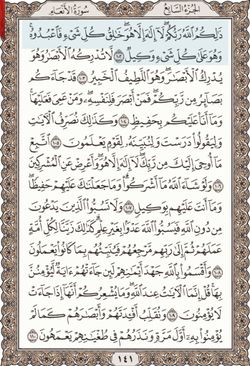 الجزء السابع سورة الأنعام
ذَٰلِكُمُ ٱللَّهُ رَبُّكُمْ لَآ إِلَٰهَ إِلَّا هُوَ خَٰلِقُ كُلِّ شَىْءٍ فَٱعْبُدُوهُ
وَهُوَ عَلَىٰ كُلِّ شَىْءٍ وَكِيلٌ ١٠٢ لَّا تُدْرِكُهُ ٱلْأَبْصَٰرُ وَهُوَ
يُدْرِكُ ٱلْأَبْصَٰرَ وَهُوَ ٱللَّطِيفُ ٱلْخَبِيرُ ١٠٣ قَدْ جَآءَكُم
بَصَآئِرُ مِن رَّبِّكُمْ فَمَنْ أَبْصَرَ فَلِنَفْسِهِۦ وَمَنْ عَمِىَ فَعَلَيْهَا
وَمَآ أَنَا۠ عَلَيْكُم بِحَفِيظٍ ١٠٤ وَكَذَٰلِكَ نُصَرِّفُ ٱلْءَايَٰتِ
وَلِيَقُولُوا۟ دَرَسْتَ وَلِنُبَيِّنَهُۥ لِقَوْمٍ يَعْلَمُونَ ١٠٥ ٱتَّبِعْ
مَآ أُوحِىَ إِلَيْكَ مِن رَّبِّكَ لَآ إِلَٰهَ إِلَّا هُوَ وَأَعْرِضْ عَنِ ٱلْمُشْرِكِينَ
١٠٦ وَلَوْ شَآءَ ٱللَّهُ مَآ أَشْرَكُوا۟ وَمَا جَعَلْنَٰكَ عَلَيْهِمْ حَفِيظًا
وَمَآ أَنتَ عَلَيْهِم بِوَكِيلٍ ١٠٧ وَلَا تَسُبُّوا۟ ٱلَّذِينَ يَدْعُونَ
مِن دُونِ ٱللَّهِ فَيَسُبُّوا۟ ٱللَّهَ عَدْوًۢا بِغَيْرِ عِلْمٍ كَذَٰلِكَ زَيَّنَّا لِكُلِّ أُمَّةٍ
عَمَلَهُمْ ثُمَّ إِلَىٰ رَبِّهِم مَّرْجِعُهُمْ فَيُنَبِّئُهُم بِمَا كَانُوا۟ يَعْمَلُونَ
١٠٨ وَأَقْسَمُوا۟ بِٱللَّهِ جَهْدَ أَيْمَٰنِهِمْ لَئِن جَآءَتْهُمْ ءَايَةٌ لَّيُؤْمِنُنَّ
بِهَا قُلْ إِنَّمَا ٱلْءَايَٰتُ عِندَ ٱللَّهِ وَمَا يُشْعِرُكُمْ أَنَّهَآ إِذَا جَآءَتْ
لَا يُؤْمِنُونَ ١٠٩ وَنُقَلِّبُ أَفْـِٔدَتَهُمْ وَأَبْصَٰرَهُمْ كَمَا لَمْ
يُؤْمِنُوا۟ بِهِۦٓ أَوَّلَ مَرَّةٍ وَنَذَرُهُمْ فِى طُغْيَٰنِهِمْ يَعْمَهُونَ ١١٠
١٤١